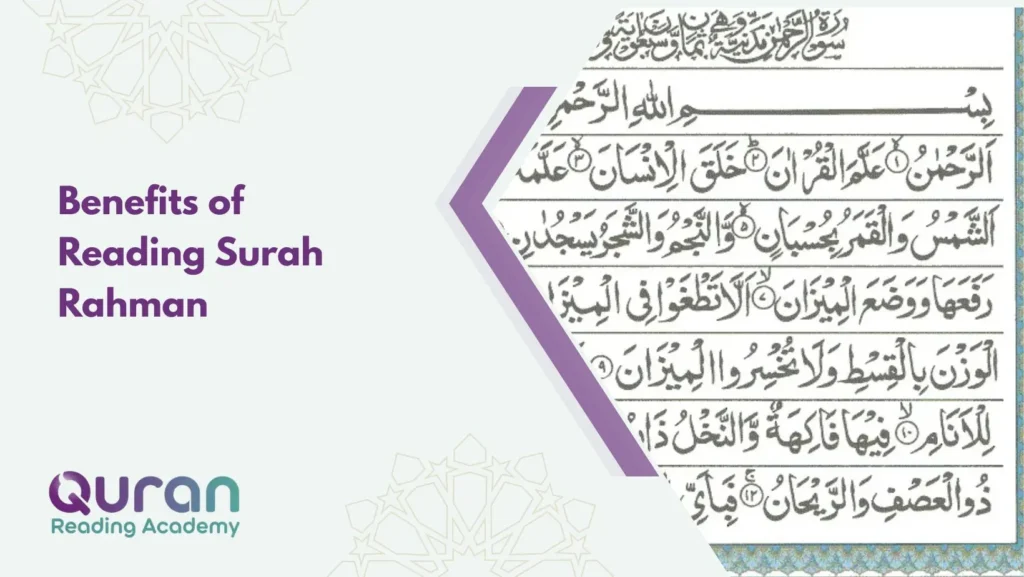 Benefits of
Reading Surah
Rahman
Quran
Reading Academy
سُوْرَةُ الرَّحْمٰنِ مَدَنِيَّةٌ وَّهِيَ ثَمَانٍ وَّسَبْعُوْنَ اٰيَةً
بِسْمِ اللهِ الرَّحْمٰ
اَلرَّحْمٰنُ ۙ﴿۱﴾ عَلَّمَ الْقُرْاٰنَ ؕ﴿۲﴾ خَلَقَ الْاِنْسَانَ ۙ﴿۳﴾ عَلَّمَهُ
اَلشَّمْسُ وَالْقَمَرُ بِحُسْبَانٍ ۙ﴿۵﴾ وَّالنَّجْمُ وَالشَّجَرُ يَسْجُدٰنِ
رَفَعَهَا وَوَضَعَ الْمِيْزَانَ ۙ﴿۷﴾ اَلَّا تَطْغَوْا فِى الْمِيْزَا
الْوَزْنَ بِالْقِسْطِ وَلَا تُخْسِرُوا الْمِيْزَانَ ﴿۹﴾
لِلْاَنَامِ ۙ﴿۱۰﴾ فِيْهَا فَاكِهَةٌ وَّالنَّخْلُ ذَا
ذُو الْعَصْفِ وَالرَّيْحَانُ ۚ﴿۱۲﴾ فَبِاَيِّ